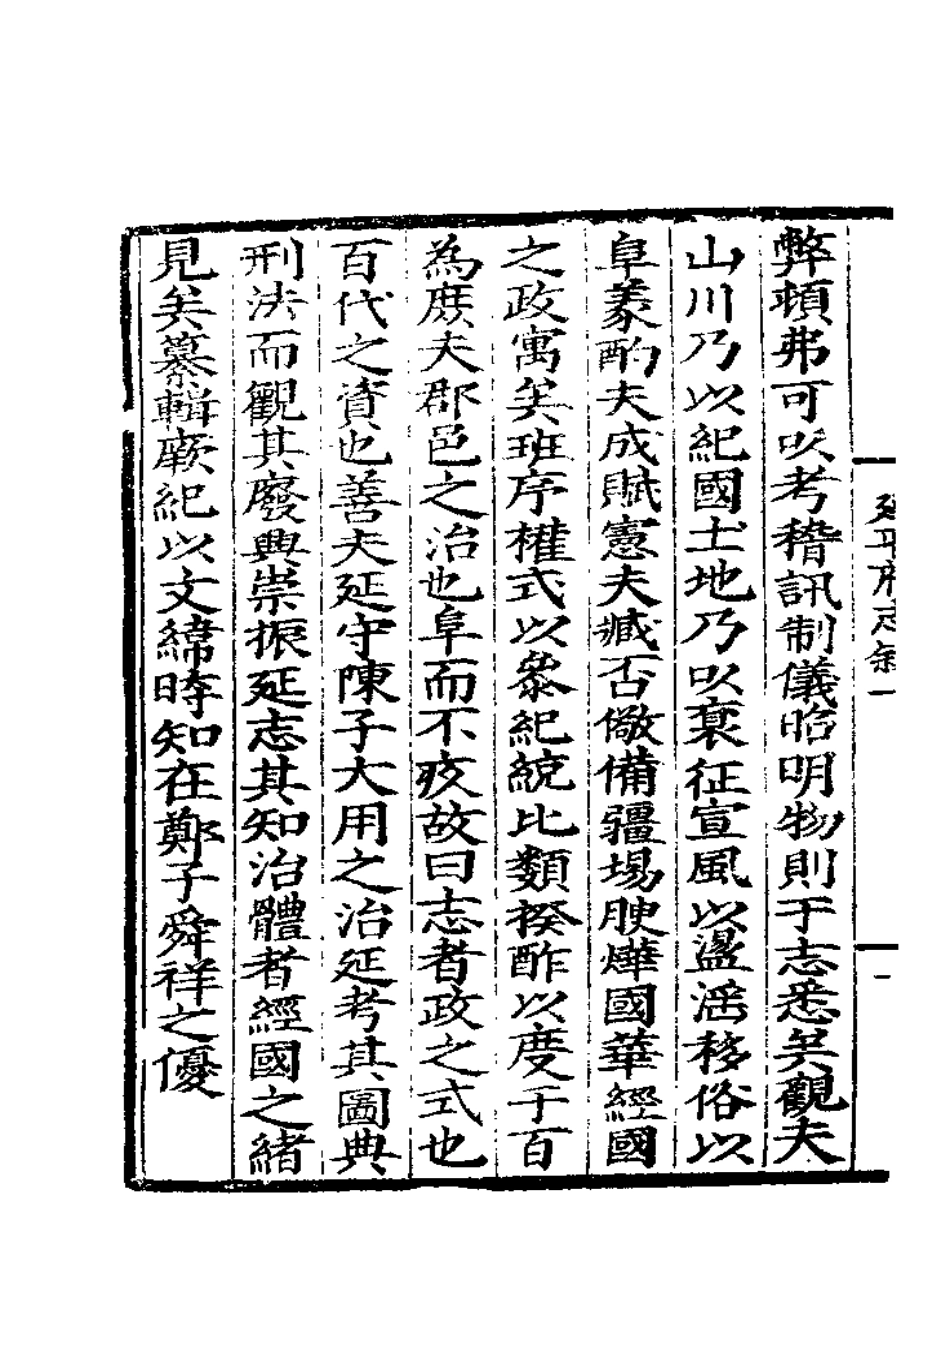 弊頓弗可以考稽訊制儀昭明物則于志悉矣觀夫
山川乃以紀國土地乃以衰征宣風以盪滛移俗以
阜蓁酌夫成賦憲夫臧否儆備疆埸腴燁國華經國
之政寓矣班序權式以叅紀統比類揆酢以度于百
為庶夫郡邑之治也阜而不疚故曰志者政之式也
百代之資也善夫延守陳子大用之治延考其圖典
刑法而觀其廢興崇振延志其知治體者經國之緒
見矣纂輯厥紀以文緯時知在鄭子舜祥之優
延平府志叙一
一